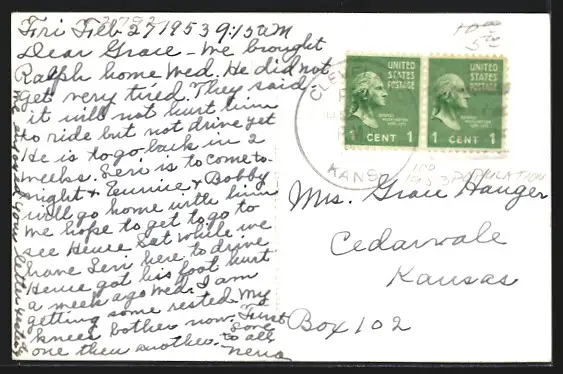 Fri Feb 27 1953 9:15 AM
Dear Grace - We brought
Ralph home Wed. He did not
get very tired. They said,
it will not hurt him
to ride but not drive yet
He is to go back in 2
weeks. Levi is to come to-
night & Eunice & Bobby
will go home with him
We hope to get to go to
see Hence Sat while we
have Levi here to drive
Hence got his foot hurt
a week ago Wed. I am
getting some rested. My
knees bother now. First
one then another. Love
to all
Nena
your letter
10¢
5¢
UNITED
STATES
POSTAGE
1 CENT 1
UNITED
STATES
POSTAGE
1 CENT 1
KANS
1953 POPULATION
Mrs. Grace Hauger
Cedarvale
Kansas
Box 102